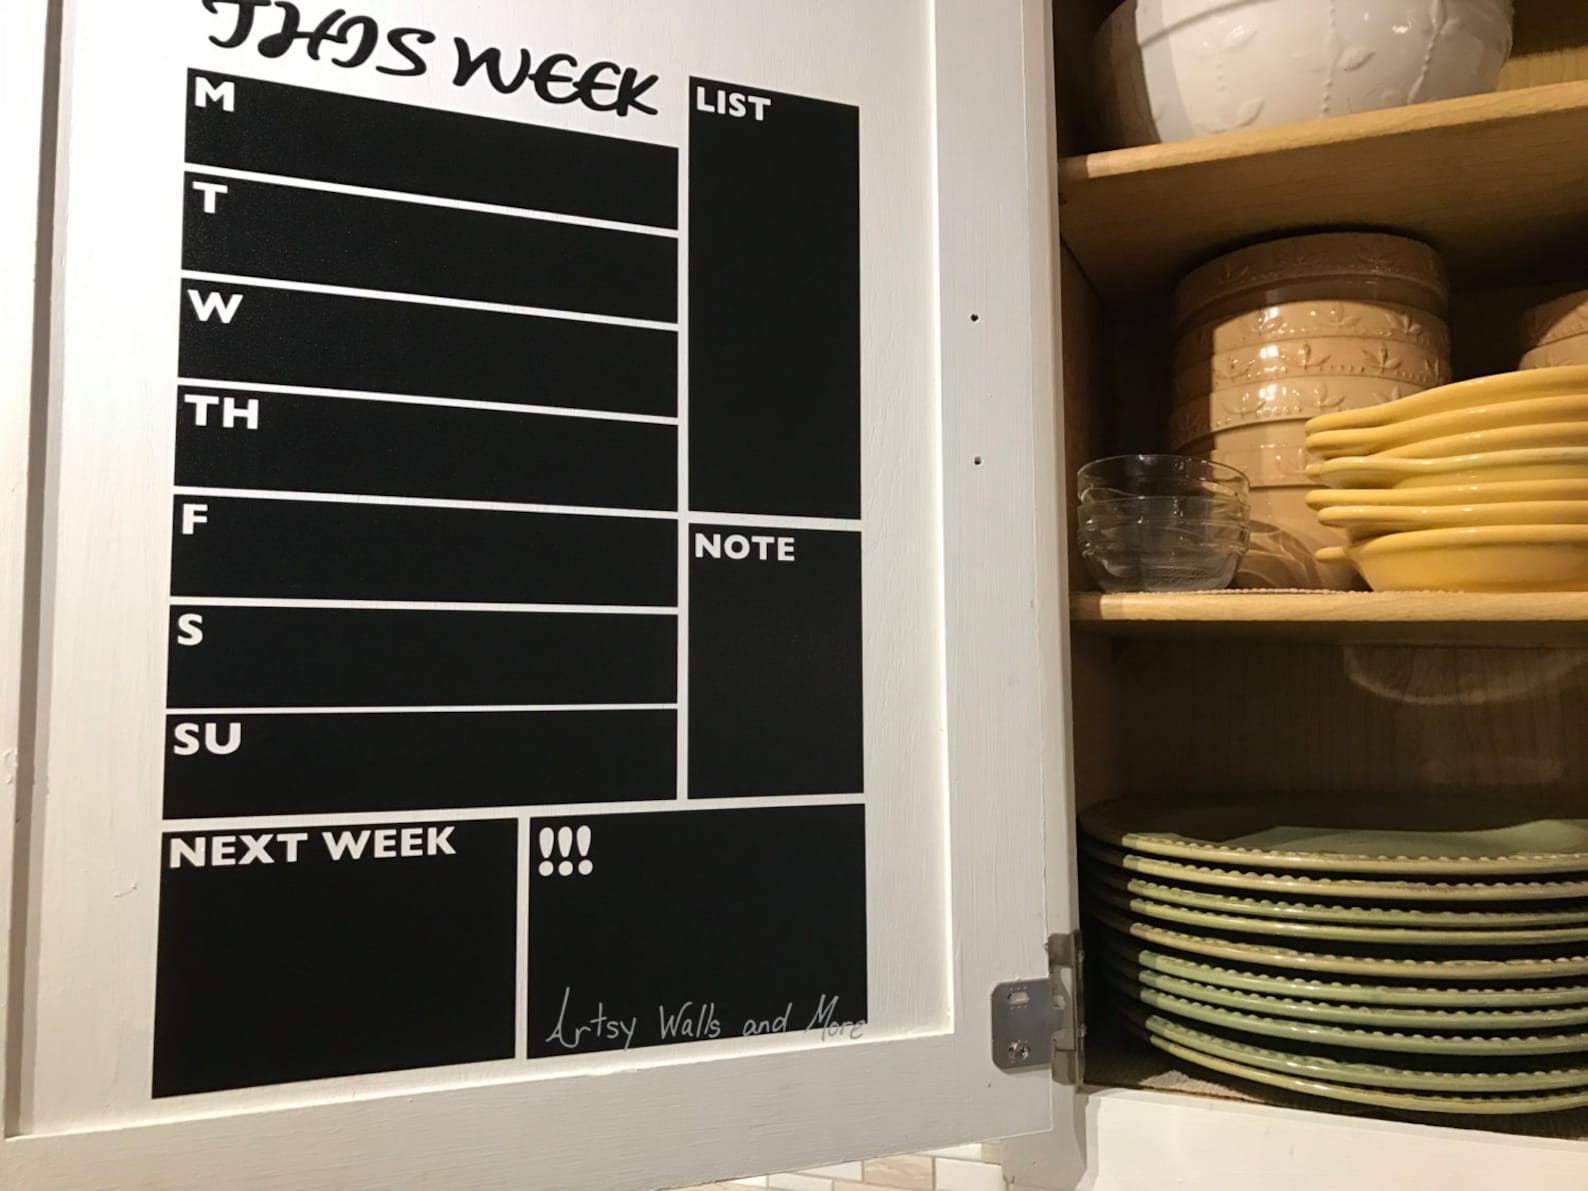 THIS WEEK
M
T
W
TH
F
S
SU
LIST
NOTE
NEXT WEEK
!!!
Artsy Walls and More